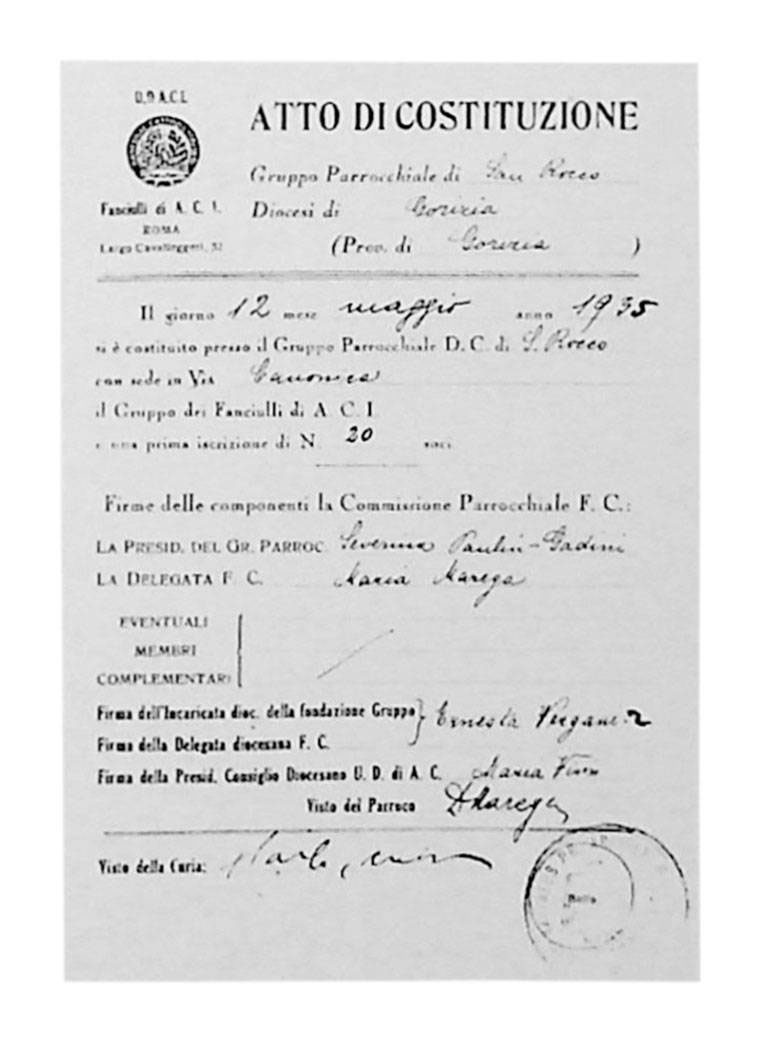 U.D.A.C.I.
Fanciulli di A. C. I.
ROMA
Largo Cavalleggeri, 32
ATTO DI COSTITUZIONE
Gruppo Parrocchiale di San Rocco
Diocesi di Gorizia
(Prov. di Gorizia )
Il giorno 12 mese maggio anno 1935
si è costituito presso il Gruppo Parrocchiale D.C. di S. Rocco
con sede in Via Canonica
il Gruppo dei Fanciulli di A. C. I.
e una prima iscrizione di N. 20 soci.
Firme delle componenti la Commissione Parrocchiale F. C.:
LA PRESID. DEL GR. PARROC. Severina Paulin-Gadini
LA DELEGATA F. C. Maria Marega
EVENTUALI
MEMBRI
COMPLEMENTARI
Firma dell'Incaricata dioc. della fondazione Gruppo Ernesta
Firma della Delegata diocesana F. C.
Firma della Presid. Consiglio Diocesano U. D. di A. C. Maria
Visto del Parroco Marega
Visto della Curia: